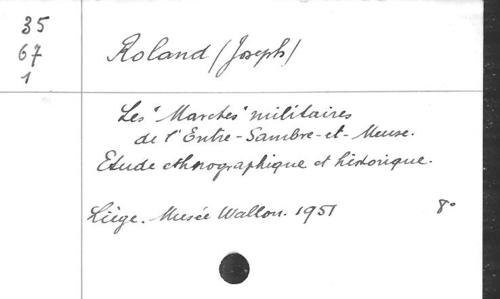 35
67
1
Roland (Joseph)
Les "Marches" militaires
de l'Entre-Sambre-et-Meuse.
Etude ethnographique et historique.
Liège. Musée Wallon. 1951 8°